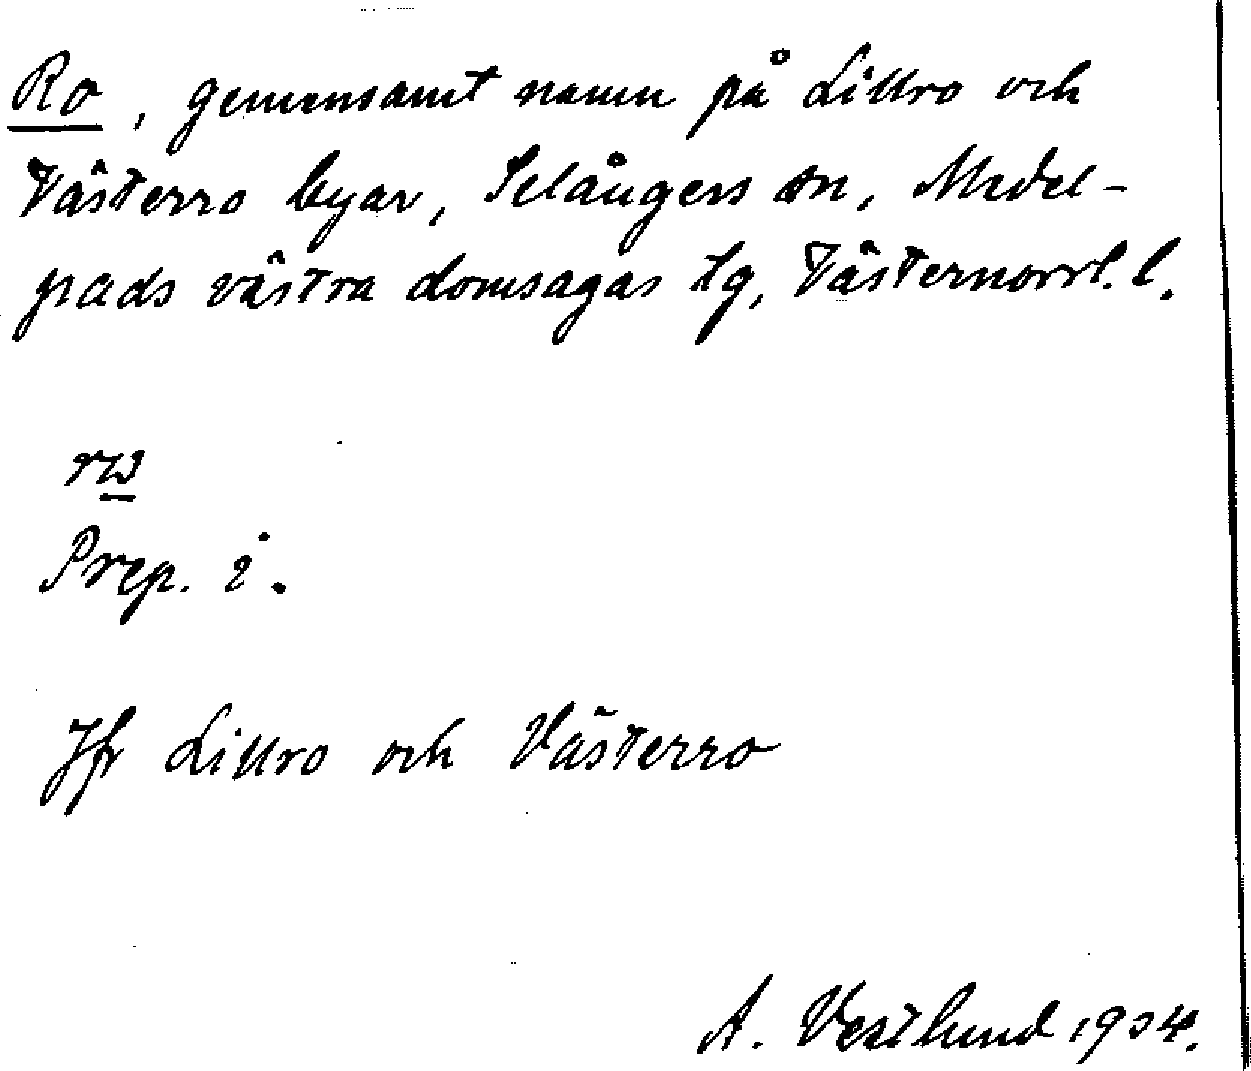 Ro, gemensamt namn på Lillro och
Västerro byar, Selångers sn, Medel-
pads västra domsagas tg, Västernorrl. l.
rω
Prep. i.
Jfr Lillro och Västerro
A. Vestlund 1934.